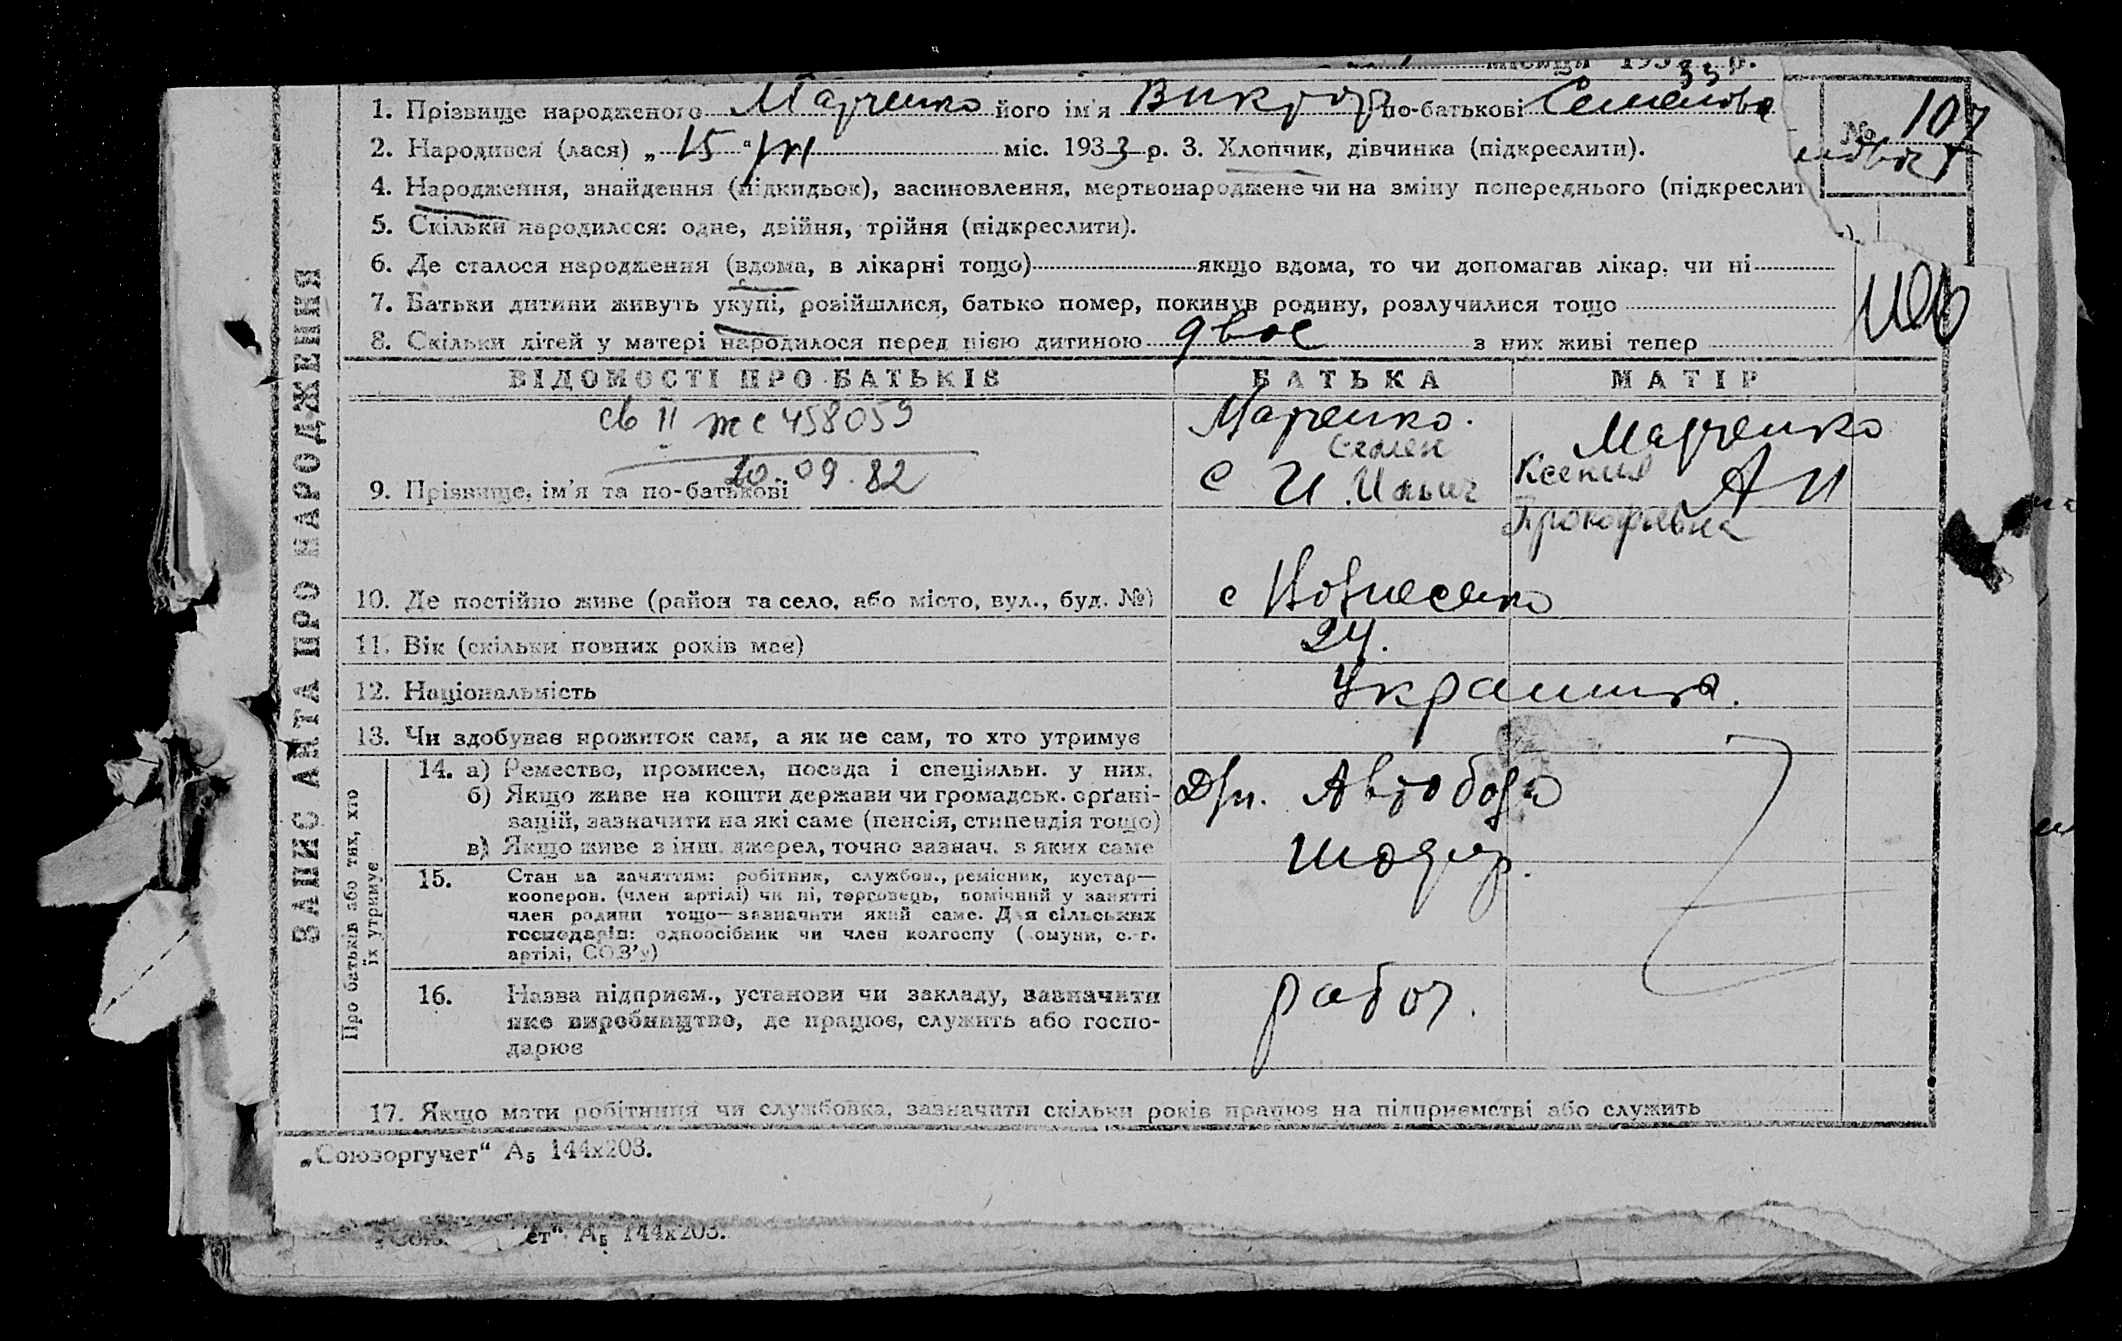 місяця 1933 р.
1. Прізвище народженого Марченко його ім'я Виктор по-батькові Семенов
№ 107
2. Народився (лася) „ 15 “ міс. 1933 р. 3. Хлопчик, дівчинка (підкреслити).
4. Народження, знайдення (підкидьок), засиновлення, мертвонароджене чи на зміну попереднього (підкреслит
5. Скільки народилося: одне, двійня, трійня (підкреслити).
6. Де сталося народження (вдома, в лікарні тощо) якщо вдома, то чи допомагав лікар, чи ні
7. Батьки дитини живуть укупі, розійшлися, батько помер, покинув родину, розлучилися тощо
8. Скільки дітей у матері народилося перед цією дитиною двое з них живі тепер
ЗАПИС АКТА ПРО НАРОДЖЕННЯ
ВІДОМОСТІ ПРО БАТЬКІВ БАТЬКА МАТІР
св II же 458059
20.09.82
9. Прізвище, ім'я та по-батькові
Марченко.
Семен
С И. Ильич
Марченко
Ксения А П
Прокофьевна
10. Де постійно живе (район та село, або місто, вул., буд. №) с Вознесенко
11. Вік (скільки повних років має) 24.
12. Національність
13. Чи здобуває прожиток сам, а як не сам, то хто утримує
Про батьків або тих, хто
їх утримує
14. а) Ремество, промисел, посада і спеціяльн. у них.
б) Якщо живе на кошти держави чи громадськ. орґані-
зацій, зазначити на які саме (пенсія, стипендія тощо)
в) Якщо живе з інш. джерел, точно зазнач. з яких саме
Автобаза
шофер.
15. Стан за заняттям: робітник, службов., ремісник, кустар—
кооперов. (член артілі) чи ні, торговець, помічний у занятті
член родини тощо—зазначити який саме. Для сільських
господарів: одноосібник чи член колгоспу (комуни, с.-г.
артілі, СОЗ'у)
16. Назва підприєм., установи чи закладу, зазначити
яке виробництво, де працює, служить або госпо-
дарює
рабоч.
17. Якщо мати робітниця чи службовка, зазначити скільки років працює на підприємстві або служить
„Союзоргучет“ А5 144х203.
ет“ А5 144х203.